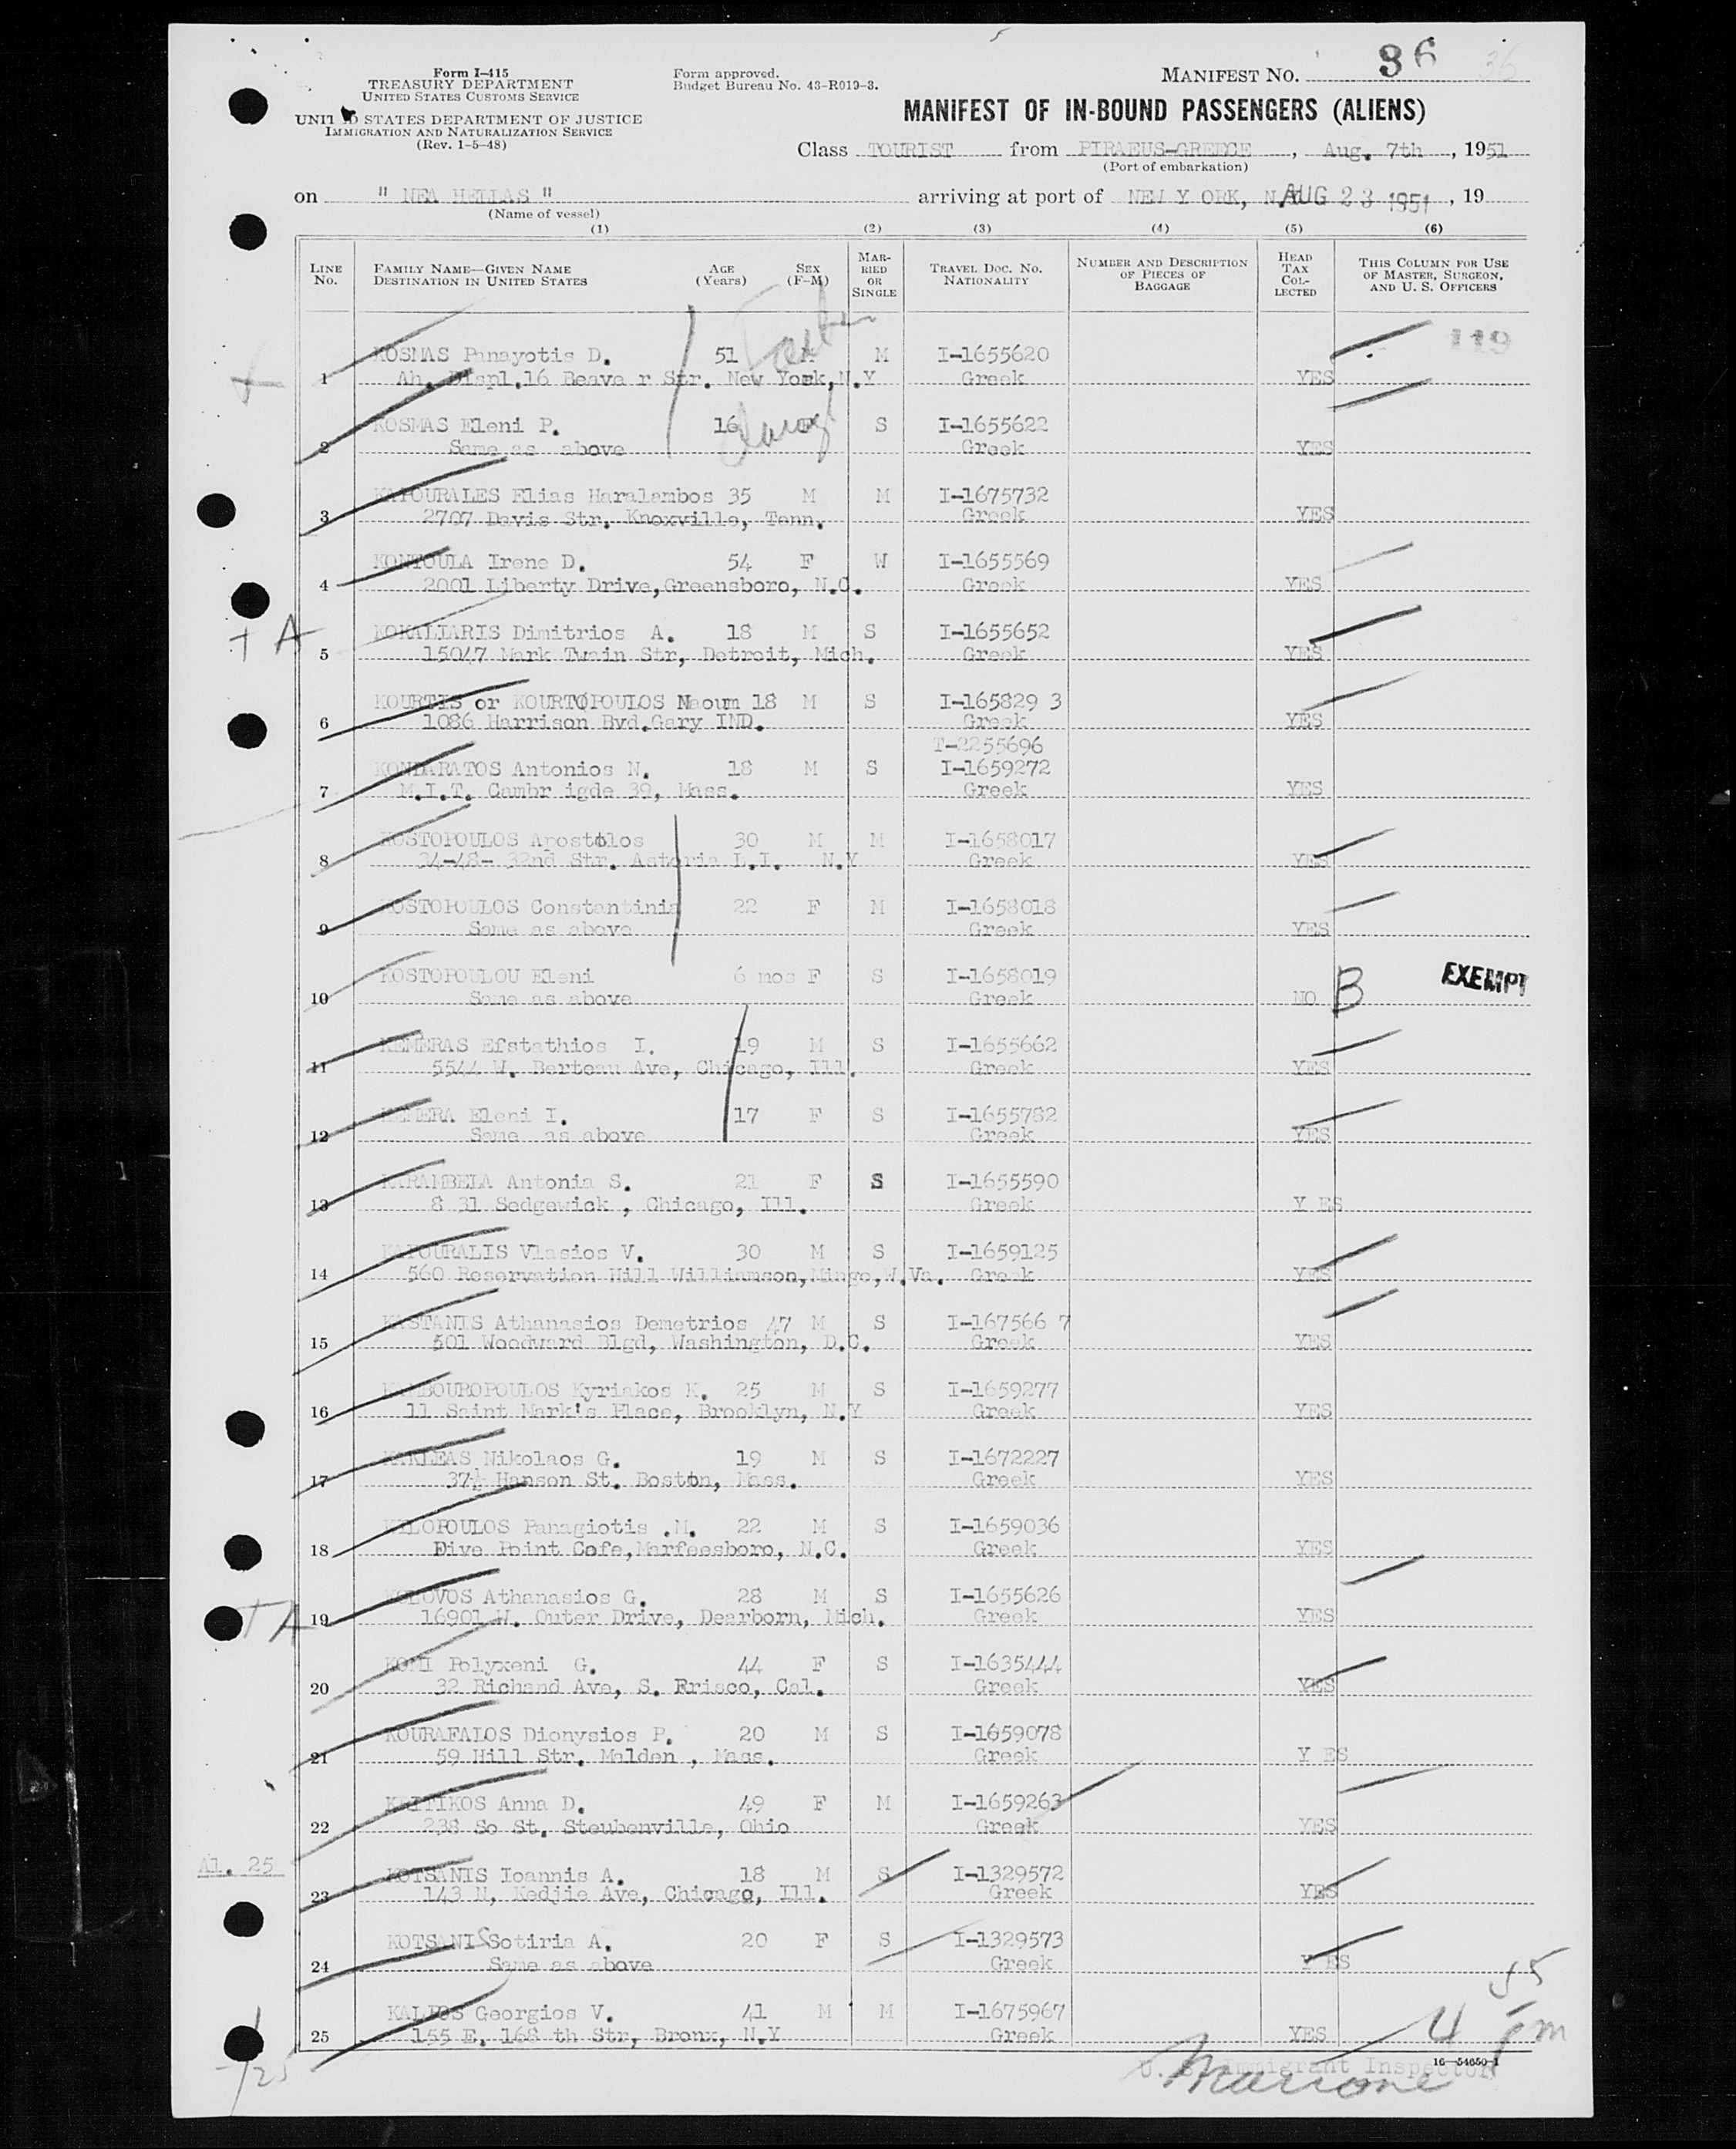 36 36
Form I-415
TREASURY DEPARTMENT
UNITED STATES CUSTOMS SERVICE
UNITED STATES DEPARTMENT OF JUSTICE
IMMIGRATION AND NATURALIZATION SERVICE
(Rev. 1-5-48)
Form approved.
Budget Bureau No. 43-R019-3.
MANIFEST NO.
MANIFEST OF IN-BOUND PASSENGERS (ALIENS)
Class TOURIST from PIRAEUS-GREECE, Aug. 7th, 1951
(Port of embarkation)
on " NEA HELLAS " arriving at port of NEW Y ORK, N.Y. AUG 23 1951, 19
(Name of vessel)
(1) (2) (3) (4) (5) (6)
LINE NO. FAMILY NAME—GIVEN NAME DESTINATION IN UNITED STATES AGE (Years) SEX (F-M) MARRIED OR SINGLE TRAVEL DOC. NO. NATIONALITY NUMBER AND DESCRIPTION OF PIECES OF BAGGAGE HEAD TAX COLLECTED THIS COLUMN FOR USE OF MASTER, SURGEON, AND U. S. OFFICERS
119
KOSMAS Panayotis D. 51 M I-1655620
1 Ah. Displ.16 Beave r Str. New York,N.Y Greek YES
KOSMAS Eleni P. 16 S I-1655622
2 Same as above Greek YES
KATOURALES Elias Haralambos 35 M M I-1675732
3 2707 Davis Str. Knoxville, Tenn. Greek YES
KONTOULA Irene D. 54 F W I-1655569
4 2001 Liberty Drive,Greensboro, N.C. Greek YES
TA
KOKALIARIS Dimitrios A. 18 M S I-1655652
5 15047 Mark Twain Str, Detroit, Mich. Greek YES
KOURTIS or KOURTOPOULOS Naoum 18 M S I-165829 3
6 1086 Harrison Bvd.Gary IND. Greek YES
T-2255696
KONDARATOS Antonios N. 18 M S I-1659272
7 M.I.T. Cambr igde 39, Mass. Greek YES
KOSTOPOULOS Apostolos 30 M M I-1658017
8 34-48- 32nd Str. Astoria L.I. N.Y Greek YES
KOSTOPOULOS Constantinia 22 F M I-1658018
9 Same as above Greek YES
KOSTOPOULOU Eleni 6 mos F S I-1658019 EXEMPT
10 Same as above Greek NO B
KEMERAS Efstathios I. 19 M S I-1655662
11 5544 W. Berteau Ave, Chicago, Ill. Greek YES
KEMERA Eleni I. 17 F S I-1655782
12 Same as above Greek YES
KARAMBELA Antonia S. 21 F S I-1655590
13 8 31 Sedgewick , Chicago, Ill. Greek Y ES
KATOURALIS Vlasios V. 30 M S I-1659125
14 560 Reservation Hill Williamson,Mingo,W.Va. Greek YES
KASTANIS Athanasios Demetrios 47 M S I-167566 7
15 501 Woodward Blgd, Washington, D.C. Greek YES
Kyriakos K. 25 M S I-1659277
16 11 Saint Mark's Place, Brooklyn, N.Y Greek YES
KAKLEAS Nikolaos G. 19 M S I-1672227
17 37½ Hanson St. Boston, Mass. Greek YES
Panagiotis .M. 22 M S I-1659036
18 Five Point Cafe,Marfeesboro, N.C. Greek YES
KOLOVOS Athanasios G. 28 M S I-1655626
TA
19 16901 W. Outer Drive, Dearborn, Mich. Greek YES
KOMI Polyxeni G. 44 F S I-1635444
20 32 Richand Ave, S. Frisco, Cal. Greek YES
KOURAFALOS Dionysios P. 20 M S I-1659078
21 59 Hill Str. Malden , Mass. Greek Y ES
KRITIKOS Anna D. 49 F M I-1659263
22 238 So St. Steubenville, Ohio Greek YES
Al. 25
KOTSANIS Ioannis A. 18 M S I-1329572
23 143 N, Kedjie Ave, Chicago, Ill. Greek YES
KOTSANIS Sotiria A. 20 F S I-1329573
24 Same as above Greek Y ES
KALIVOS Georgios V. 41 M M I-1675967
25 155 E. 168 th Str, Bronx, N.Y Greek YES
4 55 pm
16—54650-1
U. S. Immigrant Inspector
Marrone